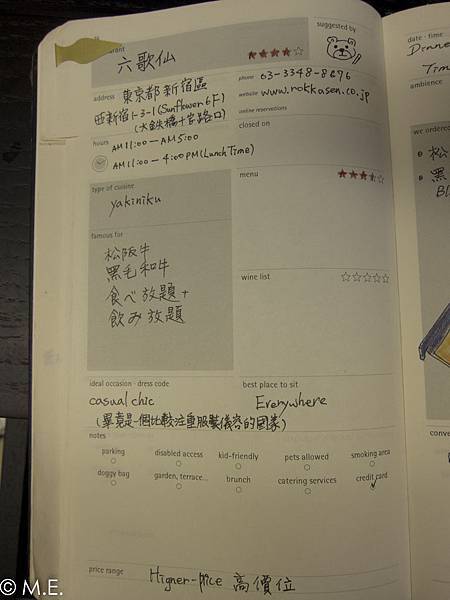 suggested by
六歌仙
address 東京都新宿區
phone 03-3348-8676
西新宿1-3-1(Sunflower 6F)
website www.rokkasen.co.jp
(大鉄橋十字路口)
online reservations
hours AM 11:00 — AM 5:00
closed on
AM 11:00 — 4:00 PM (Lunch Time)
type of cuisine
menu
yakiniku
famous for
松阪牛
黑毛和牛
食べ放題+
飲み放題
wine list
ideal occasion · dress code
best place to sit
casual chic
Everywhere
(畢竟是一個比較注重服裝儀容的國家)
notes
parking disabled access kid-friendly pets allowed smoking area
doggy bag garden, terrace... brunch catering services credit card
price range Higner-price 高價位
date · time
Dinne
Tim
ambience
we ordered
松
黑
conve
© M.E.